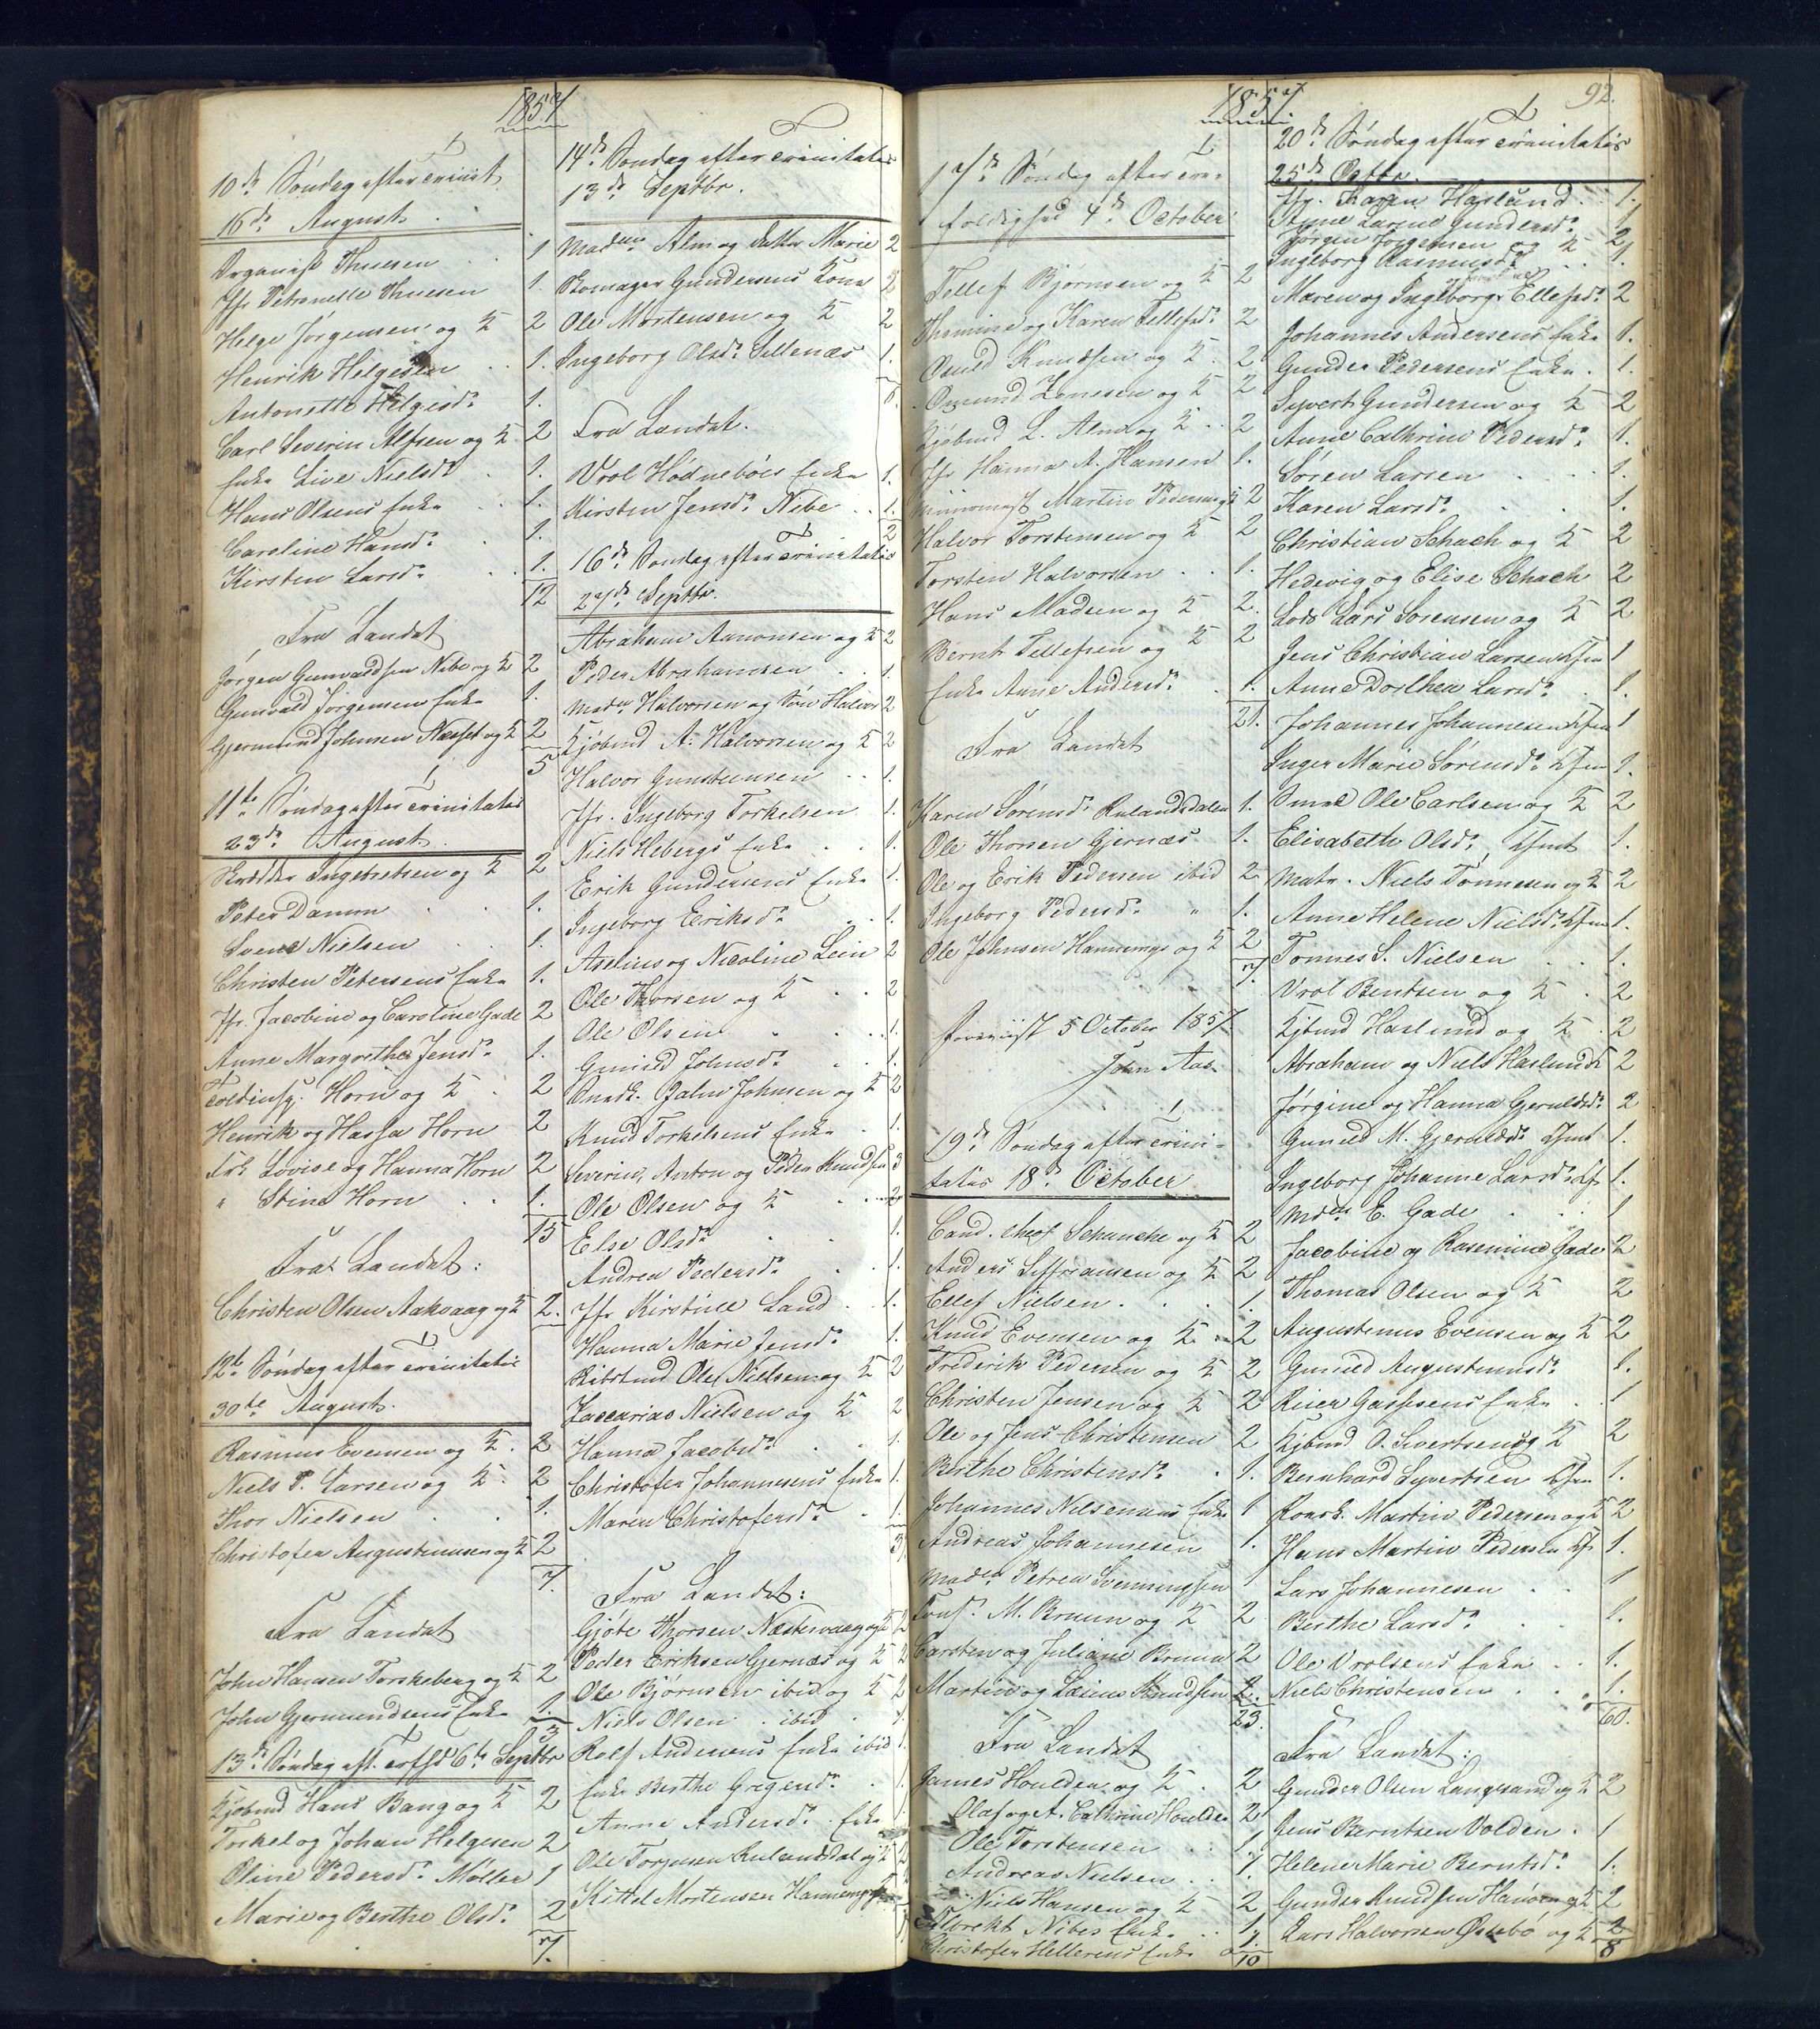 1857
10de Søndag efter Trinit.
16de August
Organist Thuesen 1
Jfr. Petronelle Thuesen 1.
Helge Jørgensen og K 2
Henrik Helgesen 1.
Antonette Helgesd. 1.
Carl Severin Alfsen og K 2
Enke Live Nielsd. 1.
Hans Olsens Enke 1.
Caroline Hansd. 1.
Kirsten Larsd. 1.
12
Fra Landet
Jørgen Gunvaldsen Nibe og K 2
Gunvald Jørgensens Enke 1.
Gjermund Johnsen Næsset og K 2
5
11te Søndag efter Trinitatis
23de August
Skrædder Ingebretsen og K 2
Peter Damm 1.
Svend Nielsen 1.
Christen Petersens Enke 1.
Jfr. Jacobine og Caroline Gade 2
Anne Margrethe Jensd. 1.
Toldinsp. Horn og K 2
Henrik og Hassa Horn 2
Frk. Lovise og Hanna Horn 2
" Stine Horn 1.
15
Fra Landet:
Christen Olsen Aakvaag og K 2.
12te Søndag efter Trinitatis
30te August.
Rasmus Evensen og K. 2
Niels P. Larsen og K. 2
Thor Nielsen 1.
Christofer Augustinusen og K 2
7.
Fra Landet
John Hansen Torskeberg og K 2
John Gjermundsens Enke 1.
3
13de Søndag eft. Trefh 6te Septbr
Kjøbmd Hans Bang og K 2
Torkel og Johan Helgesen 2
Oline Pedersd. Møller 1
Marie og Berthe Olsd. 2
7.
14de Søndag efter Trinitatis
13de Septbr.
Madme Alm og datter Marie 2
Skomager Gundersens Kone
Ole Mortensen og K 2
Ingeborg Olsd. Sillenæs 1.
Fra Landet.
Vrol Hødnebøes Enke 1.
Kirsten Jensd. Nibe 1.
2
16de Søndag efter Trinitatis
27de Septbr.
Abraham Aanonsen og K 2
Peder Abrahamsen 1.
Madme Halvorsen og Søn Halvor 2
Kjøbmd A. Halvorsen og K 2
Halvor Gunsteinsen 1.
Jfr. Ingeborg Torkelsen 1.
Niels Hebergs Enke 1.
Erik Gundersens Enke 1.
Ingeborg Eriksd. 1.
Aselius og Nicoline Lein 2
Ole Thorsen og K 2
Ole Olsen 1.
Gunild Johnsd. 1.
Snedk. Jahn Johnsen og K 2
Knud Torkelsens Enke 1.
Severin, Anton og Peder Knudsen 3
Ole Olsen og K 2
Else Olsd. 1.
Andrea Pedersd. 1.
Jfr. Kirstine Lund 1.
Hanna Marie Jensd. 1.
Ribstmd Ole Nielsen og K 2
Zaccarias Nielsen og K 2
Hanna Jacobsd. 1.
Christofer Johannesens Enke 1.
Maren Christofersd. 1.
Fra Landet:
Gjøte Thorsen Næstervaag og K 2
Peder Eriksen Gjernæs og K 2
Ole Bjørnsen ibid og K 2
Niels Olsen ibid 1.
Rolf Andersens Enke ibid 1.
Enke Berthe Gregersd. 1
Anne Andersd. Enke
Ole Torjusen Rulandsdal og K 2
Kittel Mortensen Hannemyr
1857
92.
17de Søndag efter Tre-
foldighed 4de October
Tellef Bjørnsen og K 2
Thomine og Karen Tellefsd. 2
Osuld Knudsen og K 2
Omund Zonesen og K 2
Kjøbmd L. Alm og K 2
Jfr. Hanna A. Hansen 1.
Martin Pedersen og K 2
Halvor Torstensen og K 2
Torsten Halvorsen 1.
Hans Madsen og K 2.
Bernt Tellefsen og K 2
Enke Anne Andersd. 1.
21.
Fra Landet
Karen Sørensd. Rulandsdalen 1.
Ole Thorsen Gjernæs 1.
Ole og Erik Pedersen ibid 2
Ingeborg Pedersd. " 1.
Ole Johnsen Hannemyr og K 2
7.
Foreviist 5 October 1857
John Aas
19de Søndag efter Trini-
tatis 18de October
Cand. theol Schanche og K 2
Anders Siffriansen og K 2
Ellef Nielsen 1.
Knud Evensen og K 2
Frederik Pedersen og K 2
Christen Jensen og K 2
Ole og Jens Christensen 2
Berthe Christensd. 1.
Johannes Nilsensens Enke 1
Andreas Johannesen 1.
Madme Petrea Svenningsen 1
Cons. M. Bruun og K 2
Carsten og Juliane Bruun 2
Martin og Laine Knudsen 2.
23.
Fra Landet
James Houlden og K 2
Olaf og A. Cathrine Houlden 2
Ole Torstensen 1
Andreas Nielsen 1.
Niels Hansen og K 2
Nibes Enke 1.
Christofer Hellerens Enke 1.
10
20de Søndag efter Trinitatis
25de Octbr.
Jfr. Karen Haslund 1.
Anne Larine Gundersd. 1
Jørgen Jørgensen og K 2
Ingeborg Rasmusd. 1.
Maren og Ingeborg Ellefsd. 2
Johannes Andersens Enke 1.
Gunder Pedersens Enke. 1.
Syvert Gundersen og K 2
Anne Cathrine Pedersd. 1.
Søren Larsen 1.
Karen Larsd. 1.
Christian Schach og K 2
Hedevig og Elise Schach 2
Lods Lars Sørensen og K 2
Jens Christian Larsen 1
Anne Dorthea Larsd. 1.
Johannes Johannesen 1
Inger Marie Sørensd. 1.
Smed Ole Carlsen og K 2
Elisabeth Olsd. 1.
Matr. Niels Tønnesen og K 2
Anne Helene Nielsd. 1.
Tønnes S. Nielsen 1.
Vrol Bentsen og K 2
Kjbmd Haslund og K 2
Abraham og Niels Haslund 2
Jørgine og Hanna Gjeruldsd. 2
Gunild M. Gjeruldsd. 1.
Ingeborg Johanne Larsd. 1.
Mdme E. Gade 1
Jacobine og Rasmine Gade 2
Thomas Olsen og K 2
Augustinus Evensen og K 2
Gunild Augustinusd. 1.
Riier Gassens Enke 1
Kjbmd O. Sivertsen og K 2
Bernhard Syvertsen 1.
Martin Pedersen og K 2
Hans Martin Pedersen 1.
Lars Johannesen 1
Berthe Larsd. 1.
Ole Vrolsens Enke 1.
Niels Christensen 1.
60.
Fra Landet:
Gunder Olsen Langsand og K 2
Jens Berntsen Volden 1
Helene Marie Berntsd. 1.
Gunder Knudsen Hanøen og K 2
Lars Halvorsen Østebø og K 2
8